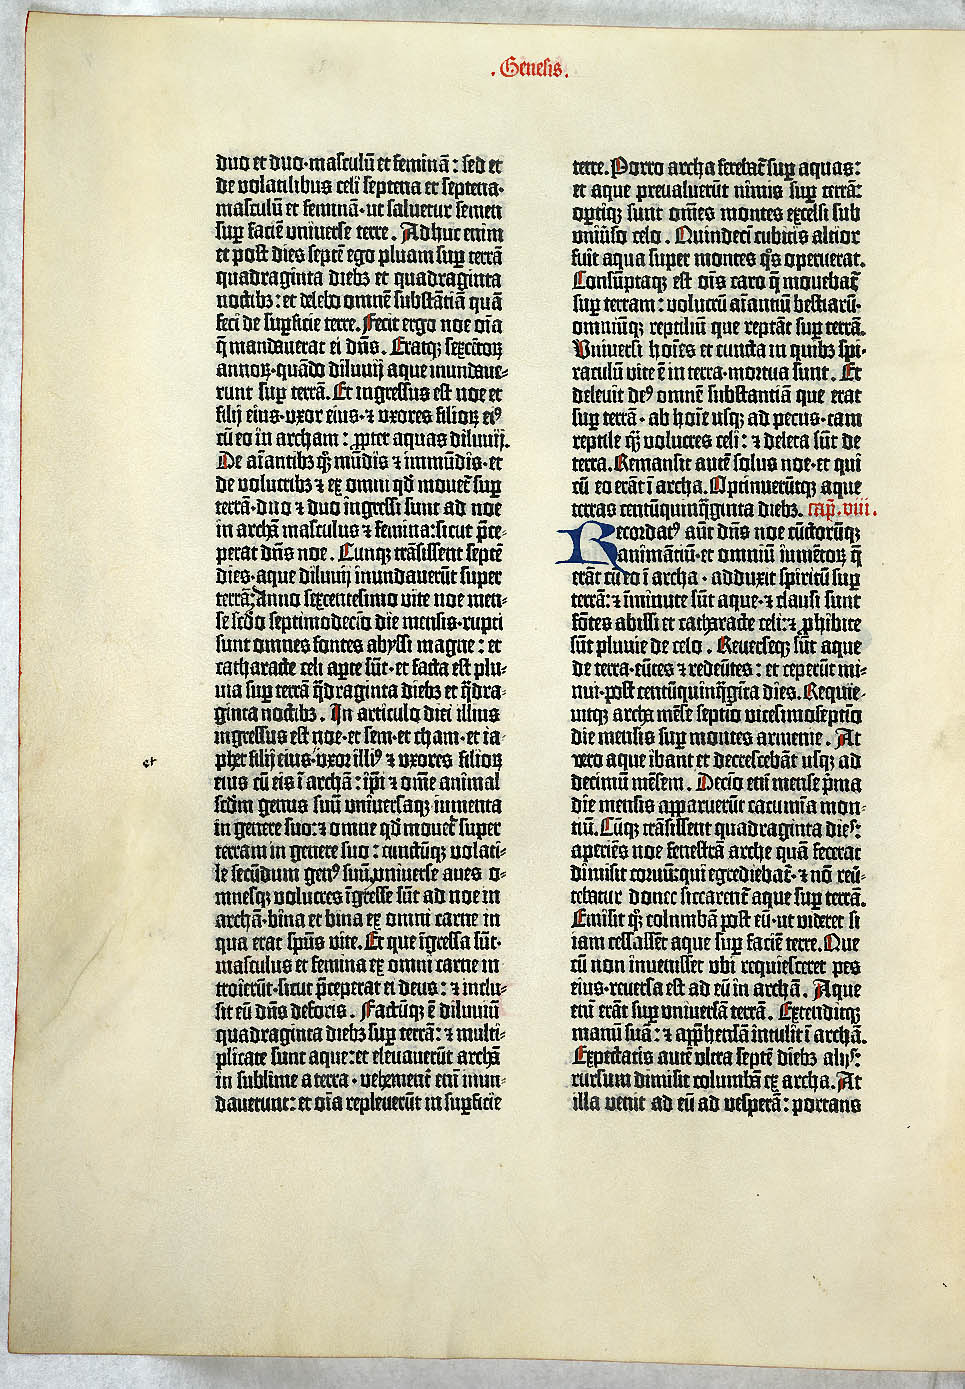 . Genesis .
duo et duo·masculū et feminā: sed et
de volatilibus celi septena et septena·
masculū et feminā·ut saluetur semen
sup̄ faciē vniuerse terre. Adhuc enim
et post dies septē ego pluam sup̄ terrā
quadraginta diebꝫ et quadraginta
noctibꝫ: et delebo omnē substātiā quā
feci de sup̄ficie terre. Fecit ergo noe oīa
q̄ mandauerat ei dn̄s. Eratqꝫ sexcētoꝝ
annoꝝ·quādo diluuij aque inundaue-
runt sup̄ terrā. Et ingressus est noe et
filij eius·vxor eius·⁊ vxores filioꝝ eiꝰ
cū eo in archam: ꝓpter aquas diluuij.
De aīantibꝫ qꝫ mūdis ⁊ immūdis·et
de volucribꝫ ⁊ ex omni qd̄ mouet̄ sup̄
terrā·duo ⁊ duo ingressi sunt ad noe
in archā masculus ⁊ femina: sicut p̄ce-
perat dn̄s noe. Cunqꝫ trāsissent septē
dies·aque diluuij inundauerūt super
terrā. Anno sexcentesimo vite noe men-
se scd̄o septimodecīo die mensis·rupti
sunt omnes fontes abyssi magne: et
catharacte celi apte sūt·et facta est plu-
uia sup̄ terrā q̄draginta diebꝫ et q̄dra-
ginta noctibꝫ. In articulo diei illius
ingressus est noe·et sem·et cham·et ia-
phet filij eius·vxor illiꝰ ⁊ vxores filioꝝ
et
eius cū eis ī archā: ip̄i ⁊ om̄e animal
scdm̄ genus suū vniuersaqꝫ iumenta
in genere suo: ⁊ omne qd̄ mouet̄ super
terram in genere suo: cunctūqꝫ volati-
le secūdum genꝰ suū. vniuerse aues o-
mnesqꝫ volucres īgresse sūt ad noe in
archā·bina et bina ex omni carne in
qua erat spūs vite. Et que īgressa sūt·
masculus et femina ex omni carne in
troierūt·sicut p̄ceperat ei deus: ⁊ inclu-
sit eū dn̄s deforis. Factūqꝫ ē diluuiū
quadraginta diebꝫ sup̄ terrā: ⁊ multi-
plicate sunt aque: et eleuauerūt archā
in sublime a terra·vehement̄ etī inun-
dauerunt: et oīa repleuerūt in sup̄ficie
terre. Porro archa ferebat̄ sup̄ aquas:
et aque preualuerūt nimis sup̄ terrā:
optiqꝫ sunt om̄es montes excelsi sub
vniūso celo. Quindecī cubitis altior
fuit aqua super montes q̄s operuerat.
Consūptaqꝫ est oīs caro q̄ mouebat̄
sup̄ terram: volucrū aīantiū bestiarū·
omniūqꝫ reptiliū que reptāt sup̄ terrā.
Vniuersi hoīes et cuncta in quibꝫ spi-
raculū vite ē in terra·mortua sunt. Et
deleuit deꝰ omnē substantiā que erat
sup̄ terrā·ab hoīe usqꝫ ad pecus·tam
reptile qꝫ volucres celi: ⁊ deleta sūt de
terra. Remansit autē solus noe·et qui
cū eo erāt ī archa. Optinuerūtqꝫ aque
terras centūquinq̄ginta diebꝫ. cap̄. viii.
Recordatꝰ aūt dn̄s noe cūctorūqꝫ
animātiū·et omniū iumētoꝝ q̄
erāt cū eo ī archa·adduxit spiritū sup̄
terrā: ⁊ īminute sūt aque·⁊ clausi sunt
fōtes abissi et catharacte celi: ⁊ ꝓhibite
sūt pluuie de celo. Reuerseqꝫ sūt aque
de terra·eūtes ⁊ redeūtes: et ceperūt mi-
nui·post centūquinq̄gīta dies. Requie-
uitqꝫ archa mēse septīo vicesimoseptīo
die mensis sup̄ montes armenie. At
vero aque ibant et decrescebāt usqꝫ ad
decimū mēsem. Decīo etī mense p̄ma
die mensis apparuerūt cacumīa mon-
tiū. Cūqꝫ trāsissent quadraginta dies:
aperiēs noe fenestrā arche quā fecerat
dimisit coruū: qui egrediebat̄·⁊ nō reu̅-
tebatur donec siccarent̄ aque sup̄ terrā.
Emisit qꝫ columbā post eū·ut videret si
iam cessassēt aque sup̄ faciē terre. Que
cū non inuenisset vbi requiesceret pes
eius·reuersa est ad eū in archā. Aque
enī erāt sup̄ vniuersā terrā. Extenditqꝫ
manū suā: ⁊ app̄hensā intulit ī archā.
Expectatis autē vltra septē diebꝫ alijs:
rursum dimisit columbā ex archa. At
illa venit ad eū ad vesperā: portans